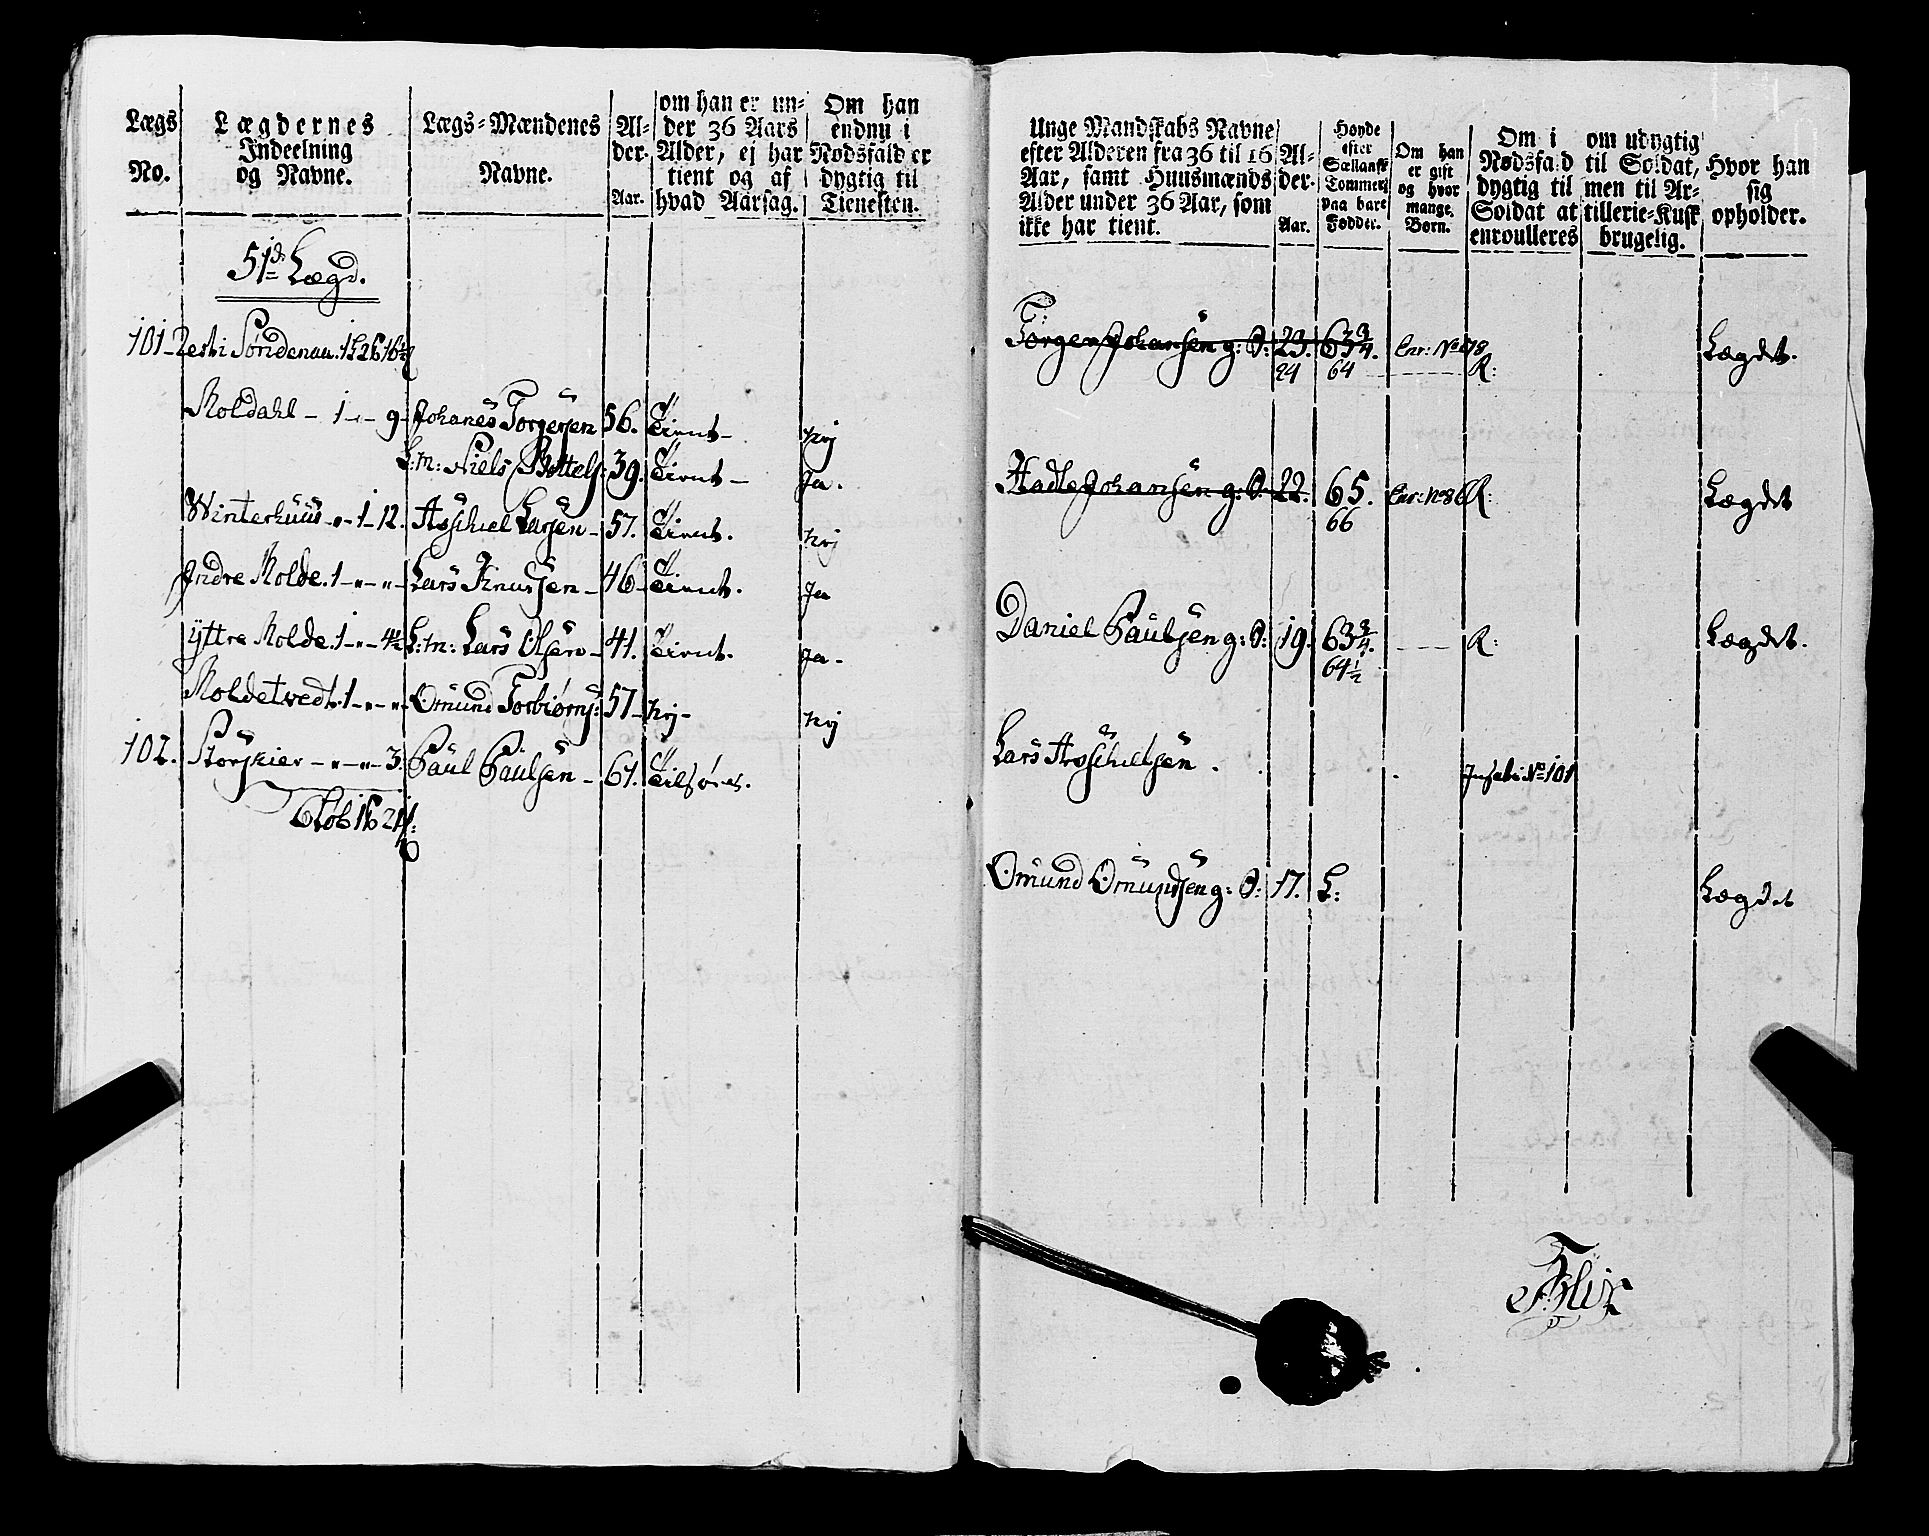 Lægs No.
Lægdernes Indeelning og Navne.
Lægs-Mændenes Navne.
Al-der. Aar.
om han er un-der 36 Aars Alder, ej har tient og af hvad Aarsag.
Om han endnu i Nødsfald er dygtig til Tienesten.
51de Lægd.
101
Moldahl - 1 - - 9 - Johanes Torgersen 56. Tient - nej
L:m: Niels 39. Tient - Ja.
Winterhuus - " - 1 - 12. Asschiel Larsen - 57. Tient. nej
Indre Molde. 1 - " - " - Lars Knudsen - 46 - Tient. Ja
Yttre Molde. 1 - " - 4½ L:m: Lars Olsen - 41. Tient. Ja -
Moldetvedt. 1 - " - " - Omund Torbiørns: 57 - nej - nej
102. Storskier - " - " - 3. Paul Paulsen - 67.
Unge Mandskabs Navne efter Alderen fra 36 til 16 Aar, samt Huusmænds Alder under 36 Aar, som ikke har tient.
Al-der. Aar.
Høyde efter Siællansk Tommer paa bare Fødder.
Om han er gift og hvor mange Børn.
Om i Nødsfald dygtig til Soldat at enroulleres
om udygtig til Soldat, men til Ar-tillerie-Kusk brugelig.
Hvor han sig opholder.
T:
Torgen Johansen g: S: 23. 63¾. Enr: No 678 Lægdet.
24 64 R:
Hadle Johansen g: S: 22. 65. R: Lægdet
66
Daniel Paulsen g: S: 19. 63¾. - - - R: Lægdet.
64½
Lars Asschielsen . Indf: No 101
Omund Omundsen g: S: 17. L: Lægdet